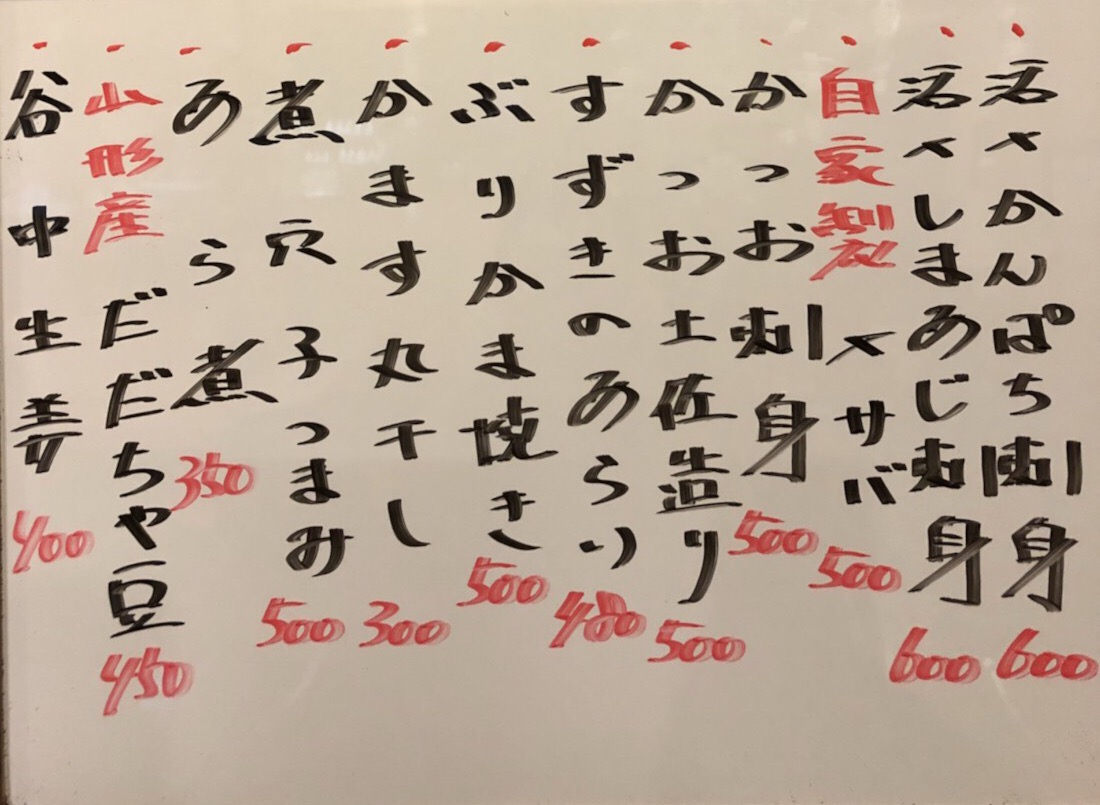 活〆かんぱち刺身 600
活〆しまあじ刺身 600
自家製〆サバ 500
かつお刺身 500
かつお土佐造り 500
すずきのあらい 480
ぶりかま焼き 500
かます丸干し 300
煮穴子つまみ 500
あら煮 350
山形産だだちゃ豆 450
谷中生姜 400